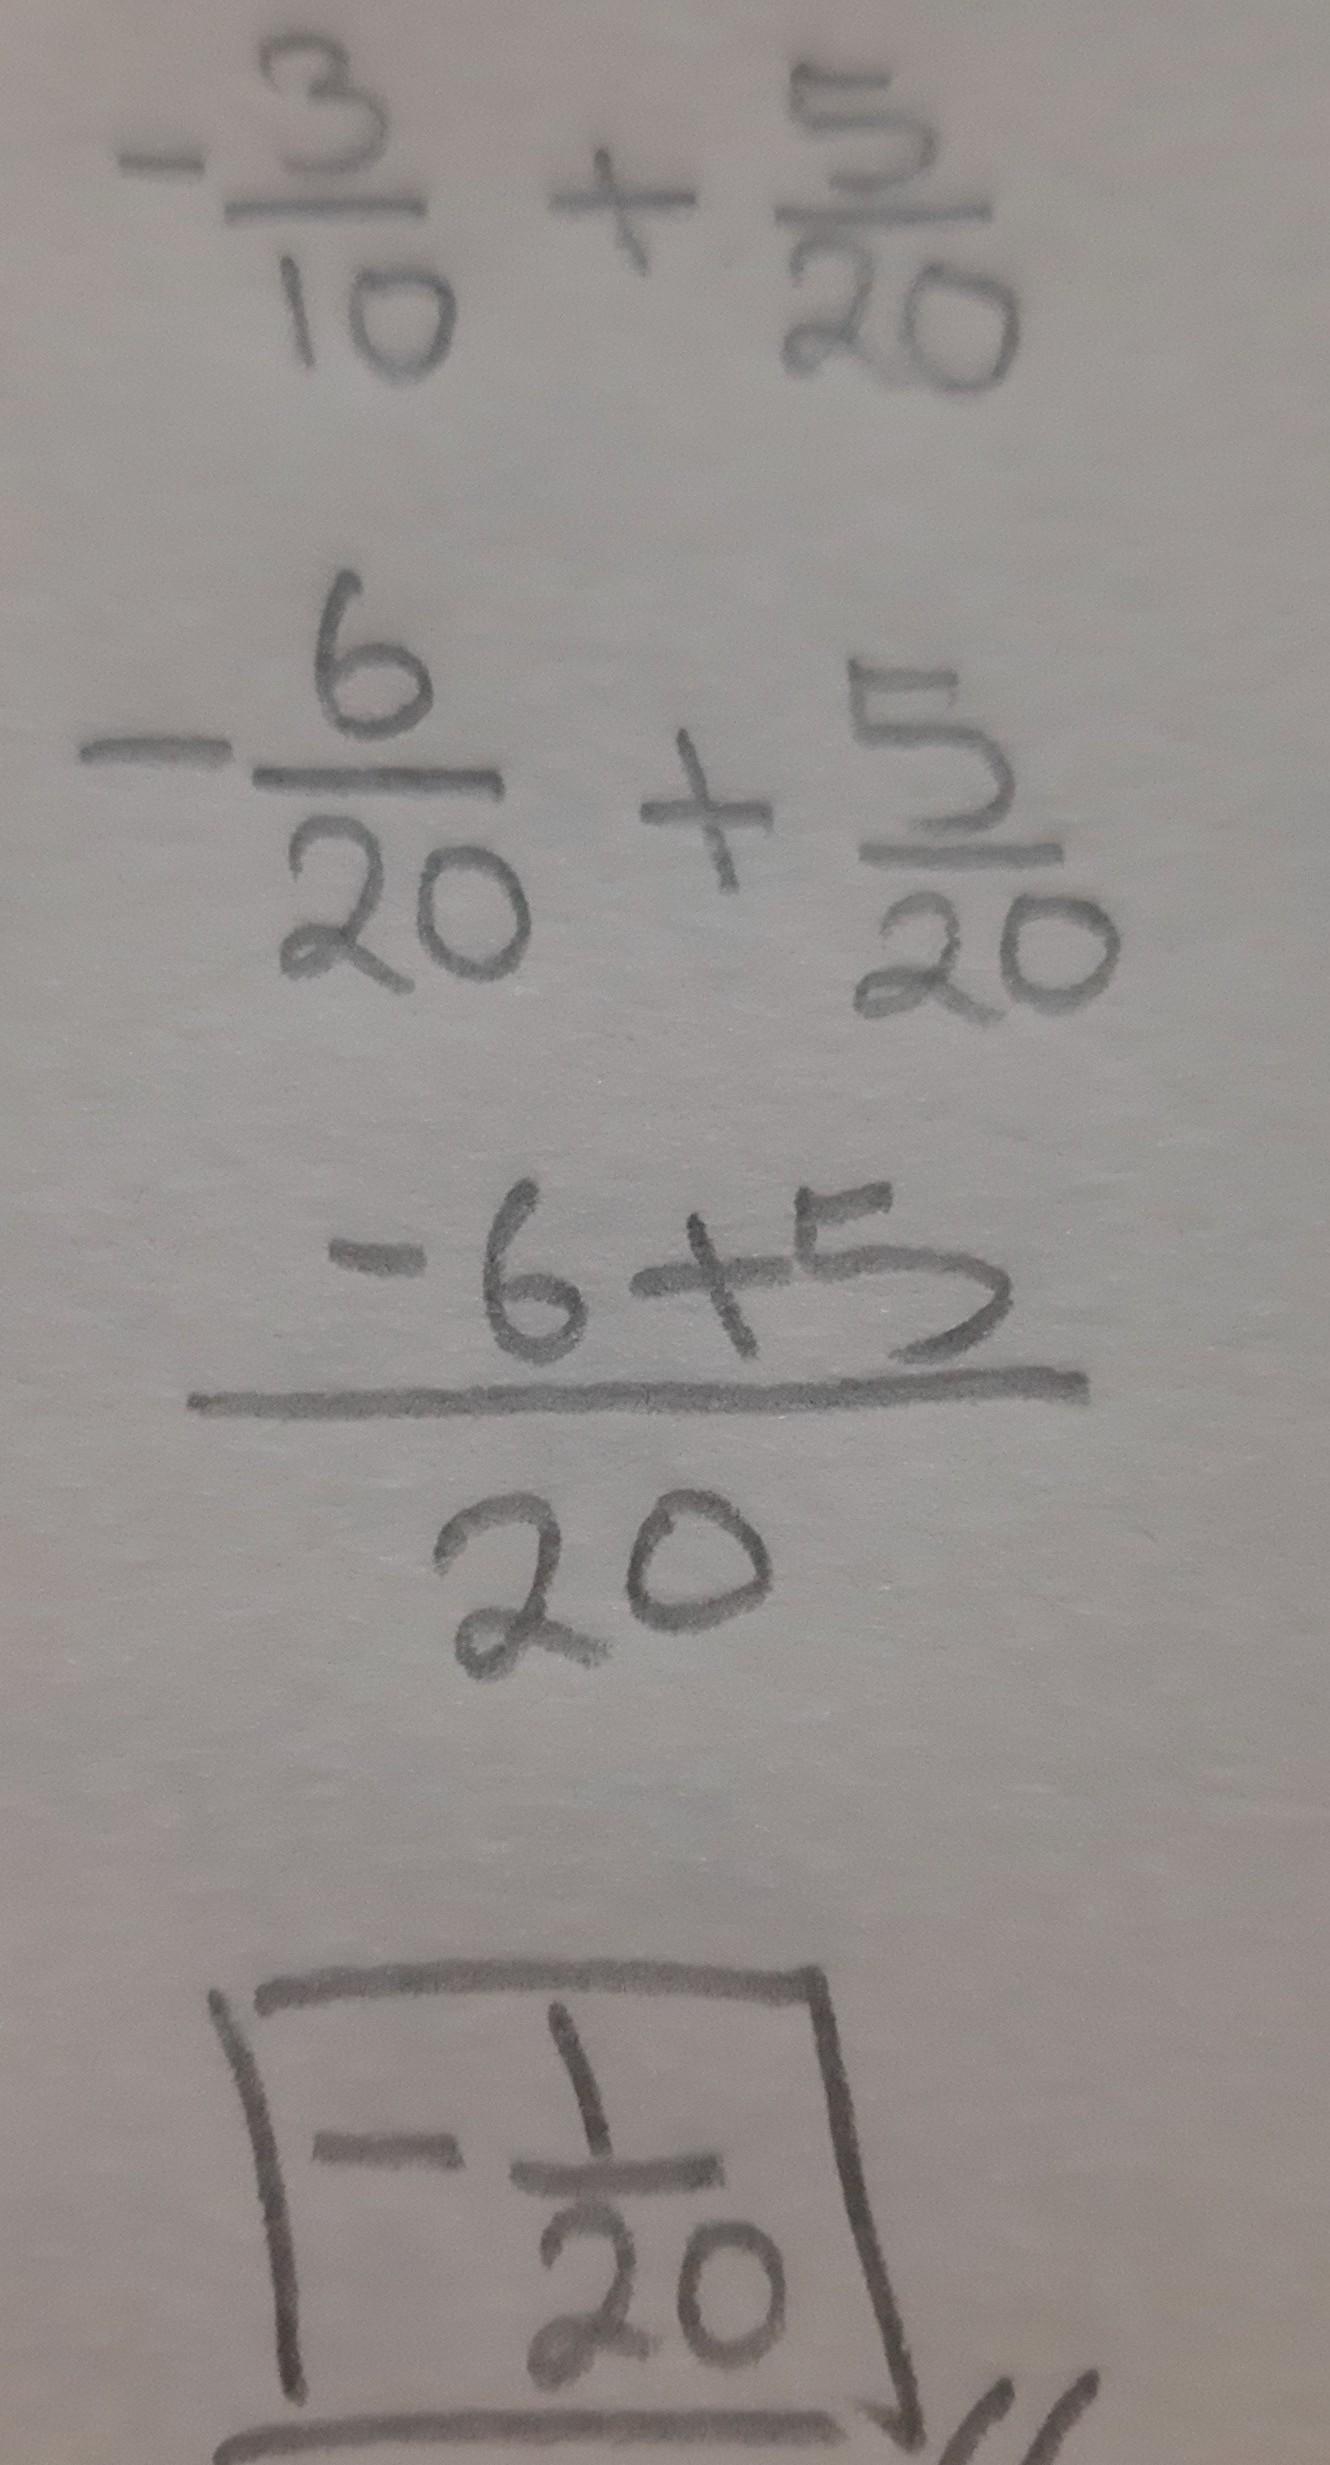 -3/10 + 5/20
-6/20 + 5/20
-6+5
20
-1/20